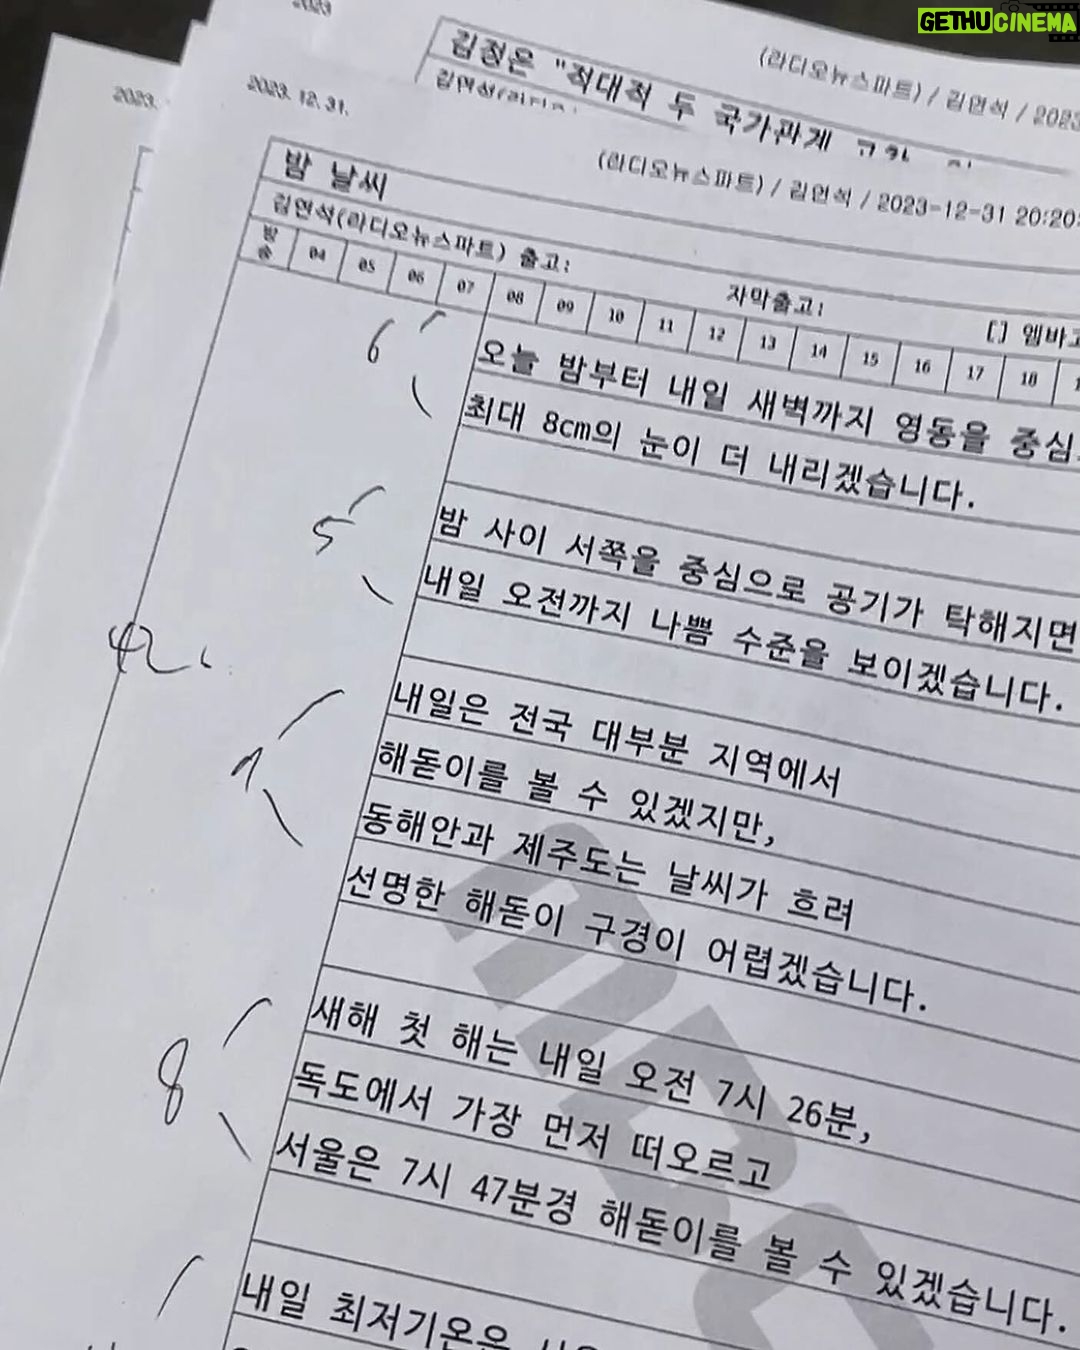 GETHUCINEMA
2023
김정은 "적대적 두 국가관계
(라디오뉴스파트) / 김연석 / 2023
2023.
2023. 12. 31.
(라디오뉴스파트) / 김연석 / 2023-12-31 20:20:
밤 날씨
김연석(라디오뉴스파트) 출고:
자막출고:
[] 엠바고
방송 04 05 06 07 08 09 10 11 12 13 14 15 16 17 18
6
오늘 밤부터 내일 새벽까지 영동을 중심
최대 8cm의 눈이 더 내리겠습니다.
5
밤 사이 서쪽을 중심으로 공기가 탁해지면
내일 오전까지 나쁨 수준을 보이겠습니다.
42
내일은 전국 대부분 지역에서
해돋이를 볼 수 있겠지만,
동해안과 제주도는 날씨가 흐려
선명한 해돋이 구경이 어렵겠습니다.
8
새해 첫 해는 내일 오전 7시 26분,
독도에서 가장 먼저 떠오르고
서울은 7시 47분경 해돋이를 볼 수 있겠습니다.
내일 최저기온은
mbc